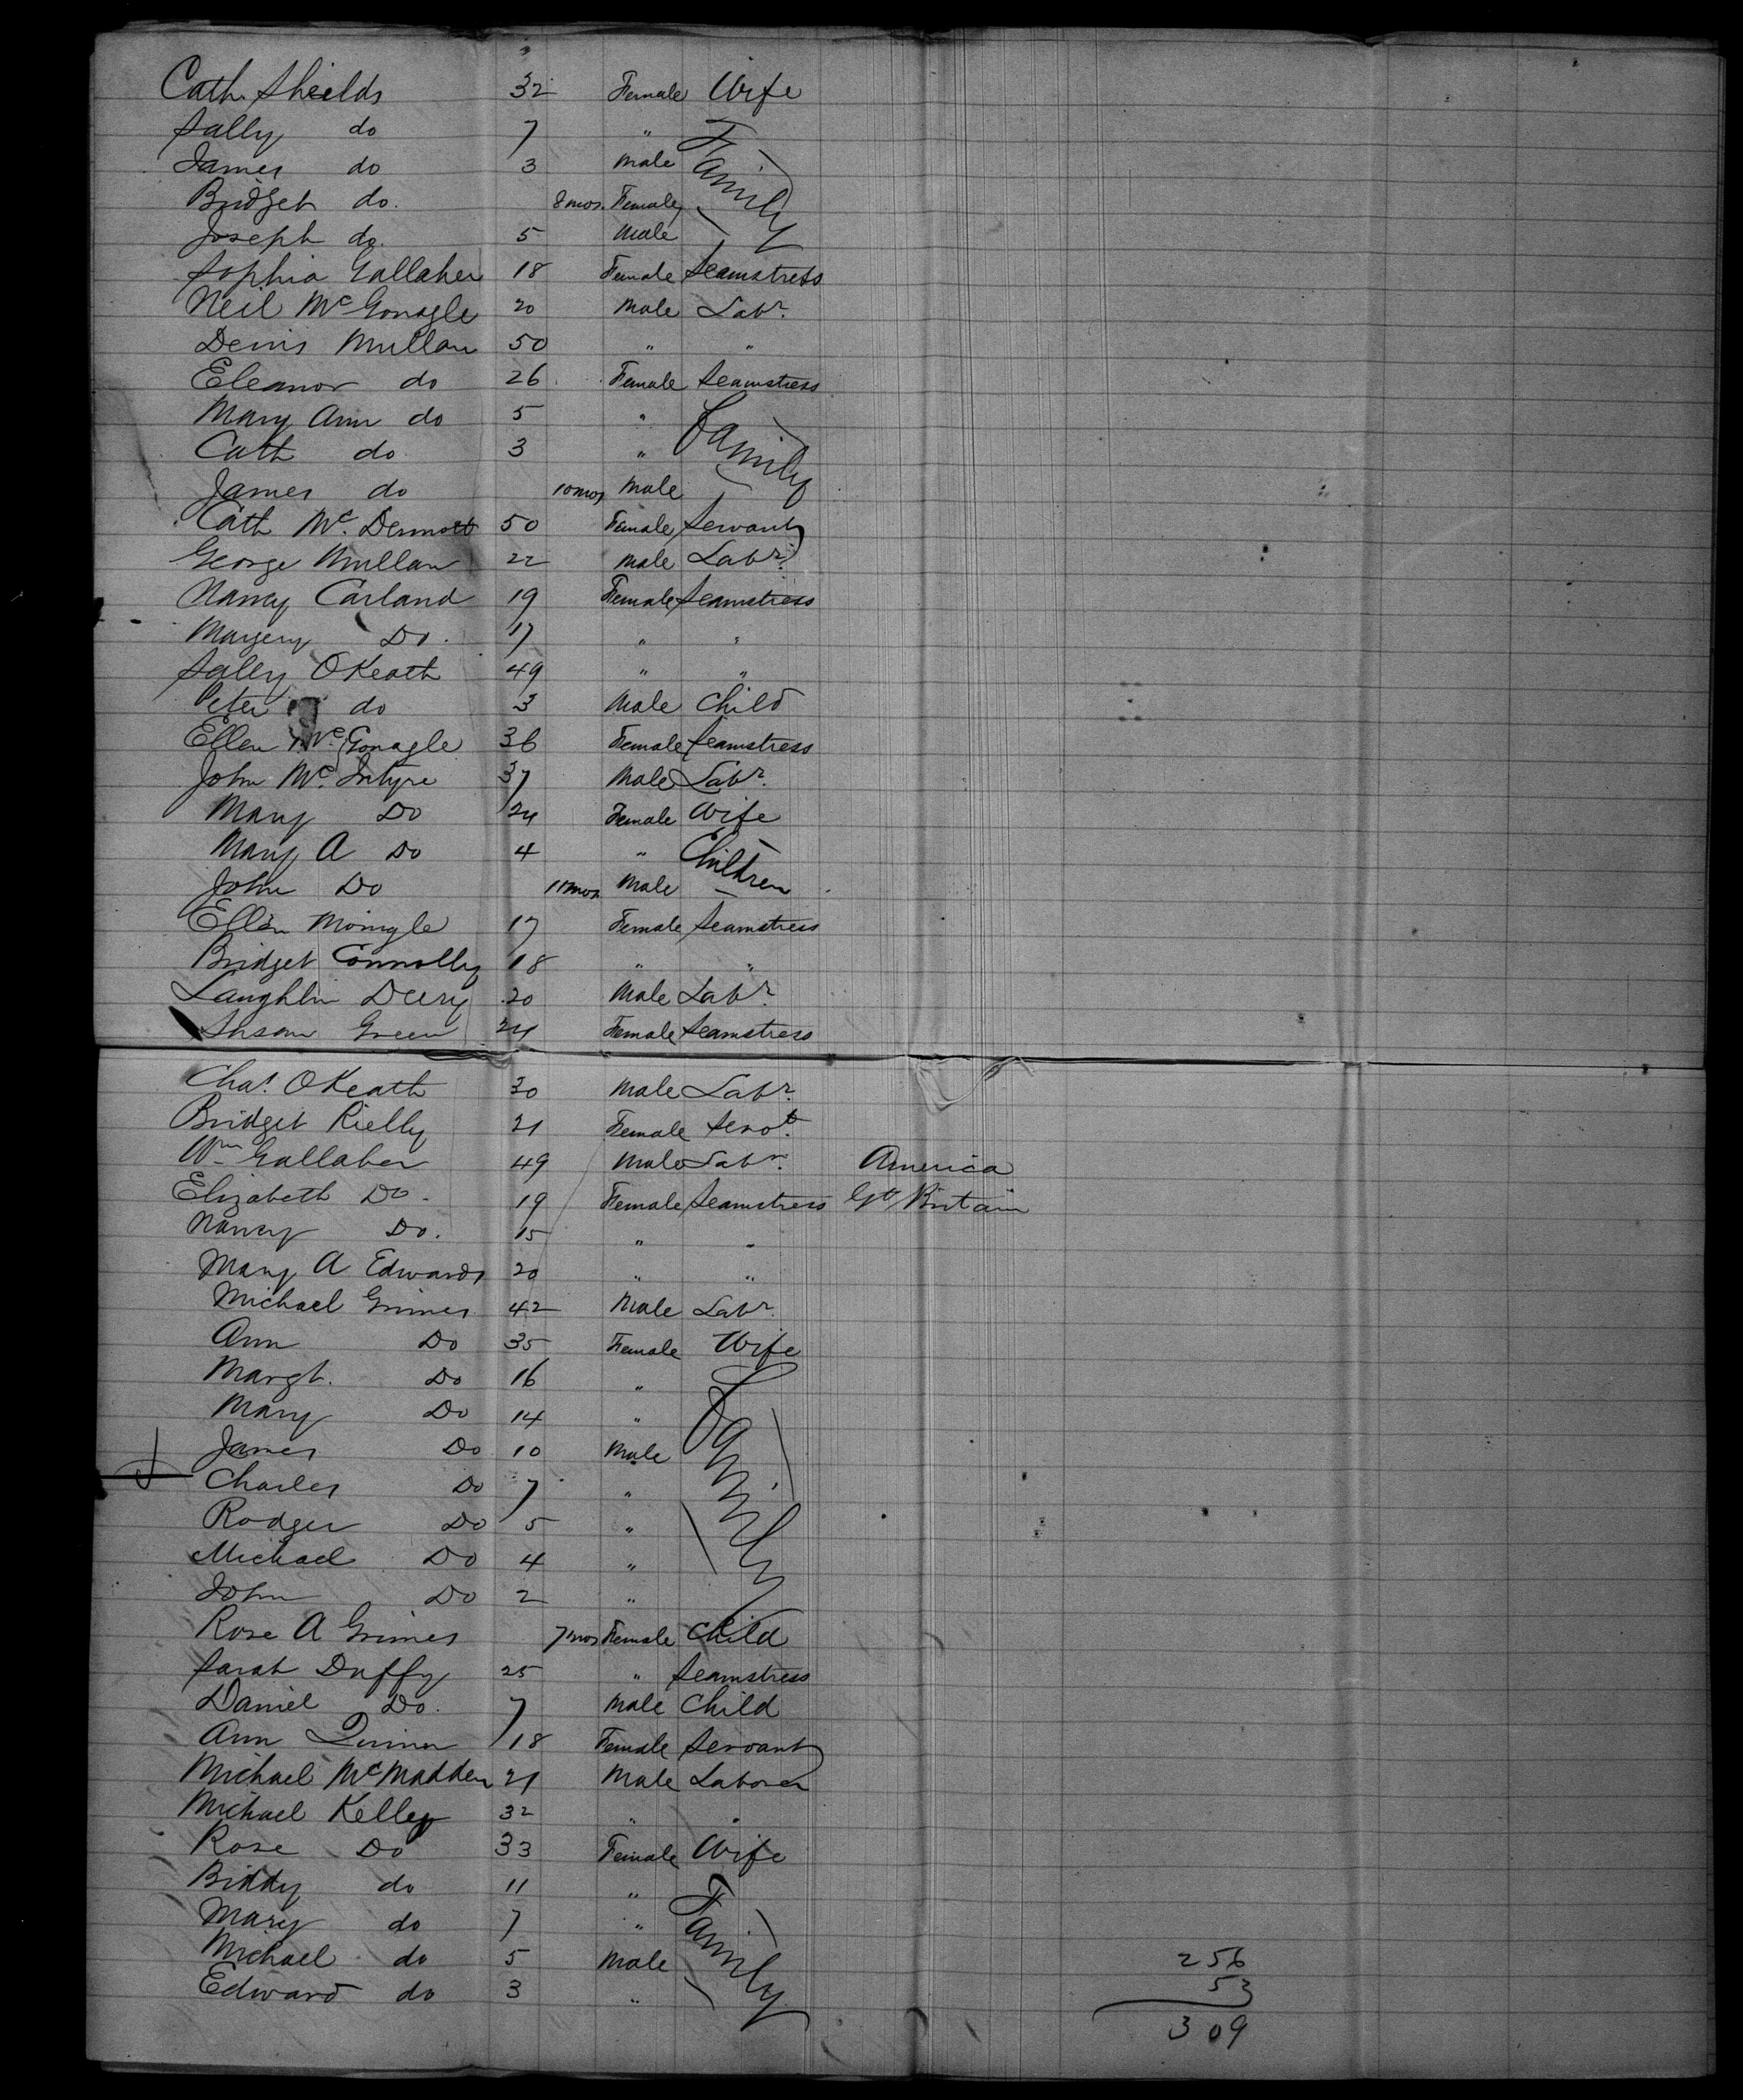 Cath. Shields 32 Female Wife
Sally do 7 " Family
James do 3 Male
Bridget do. 8 mos. Female
Joseph do. 5 Male
Sophia Gallaher 18 Female Seamstress
Neil McGonagle 20 Male Labr.
Denis Mullan 50 " "
Eleanor do 26 Female Seamstress
Mary Ann do 5 " Family
Cath do 3 "
James do 10 mos Male
Cath Mc. Dermott 50 Female Servant
George Mullan 22 Male Labr.
Nancy Carland 19 Female Seamstress
Margery Do. 17 " "
Sally OKeath 49 " "
Peter do 3 Male Child
Ellen Mc. Gonagle 36 Female Seamstress
John Mc. Intyre 37 Male Labr.
Mary Do 24 Female Wife
Mary A Do 4 " Children
John Do 11 mos Male
Ellen Monigle 17 Female Seamstress
Bridget Connolly 18 " "
Laughlin Deery 20 Male Labr.
Susan Green 24 Female Seamstress
Chas. OKeath 30 Male Labr.
Bridget Rielly 21 Female Servt.
Wm Gallaher 49 Male Labr. America
Elizabeth Do. 19 Female Seamstress Gt Britain
Nancy Do. 15 " "
Mary A Edwards 20 " "
Michael Grimes 42 Male Labr.
Ann Do 35 Female Wife
Margt. Do 16 " Family
Mary Do 14 "
James Do 10 Male
Charles Do 7 "
Rodger Do 5 "
Michael Do 4 "
John Do 2 "
Rose A Grimes 7 mos Female Child
Sarah Duffy 25 " Seamstress
Daniel Do. 7 Male Child
Ann Quinn 18 Female Servant
Michael McMadden 21 Male Laborer
Michael Kelley 32 " "
Rose Do 33 Female Wife
Biddy do 11 " Family
Mary do 7 "
Michael do 5 Male
Edward do 3 "
256
53
309